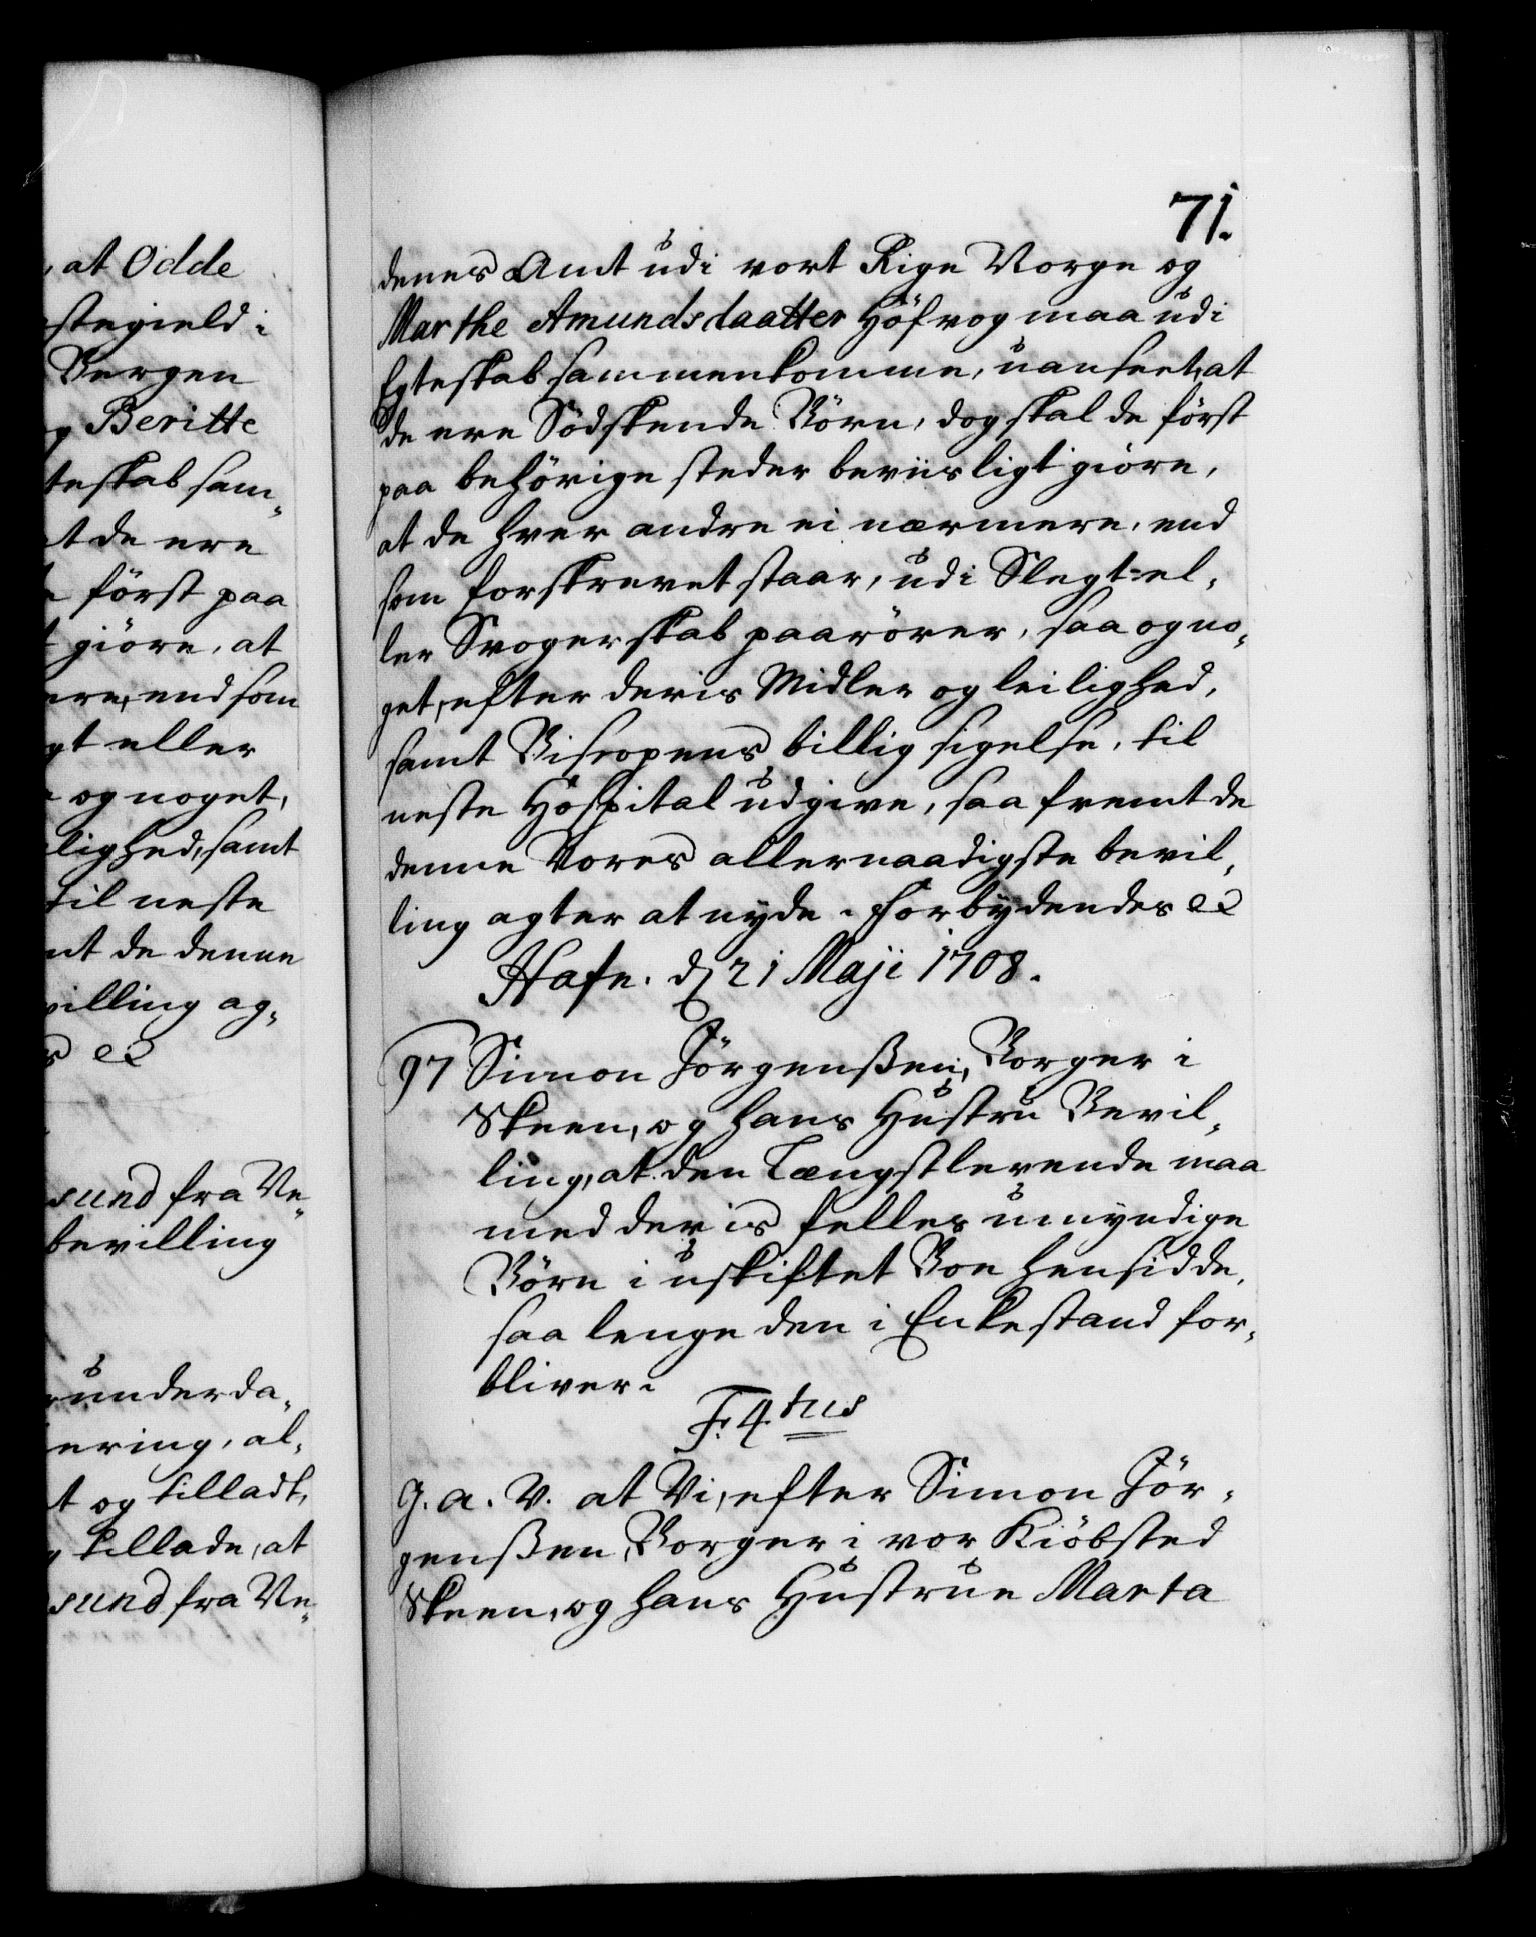 , at Odde
stegield i
Bergen
g Beritte
teskab sam,,
t de ere
e först paa
t giöre, at
ere, end som
gt eller
e og noget,
lighed, samt
til neste
mt de denne
villing ag,,
s &c

sund fra Ve,,
bevilling

underda,,
ering, al,,
t og tilladt,
g tillade, at
sund fra Ve,,

71.
denes Amt udi vort Rige Norge og
Marthe Amundsdaatter Höfvog maa udi
Egteskab sammenkomme, uanseet, at
de ere Södskende Börn, dog skal de först
paa behörige steder beviisligt giöre,
at de hver andre ei nærmere, end
som forskrevet staar, udi Slegt-el,,
ler Svogerskab paarörer, saa og no,,
get, efter deris Midler og leilighed,
samt Biscopens billig sigelse, til
neste Hospital udgive, saa fremt de
denne Vores allernaadigste bevil,,
ling agter at nyde. Forbydendes &c
Hafn. d 21 Maji 1708.
97 Simon Jörgenßen, Borger i
Skeen, og hans Hustru Bevil,,
ling, at den Længstlevende maa
med deris felles umyndige
Börn i uskiftet Boe hensidde,
saa lenge den i Enkestand for,,
bliver.
F. 4.tus
G. a. V. at Vi, efter Simon Jör,,
genßen, Borger i vor Kiöbsted
Skeen, og hans Hustrue Marta